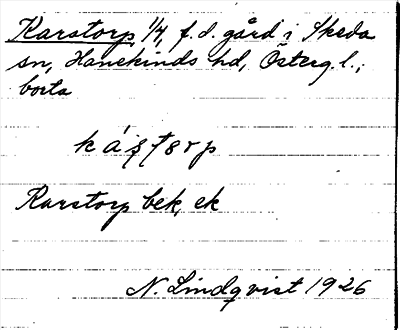 Karstorp, 1/4, f. d. gård i Skeda
sn, Hanekinds hd, Österg. l.;
borta
káṣṭorp
Karstorp bek, ek
N. Lindqvist 1926